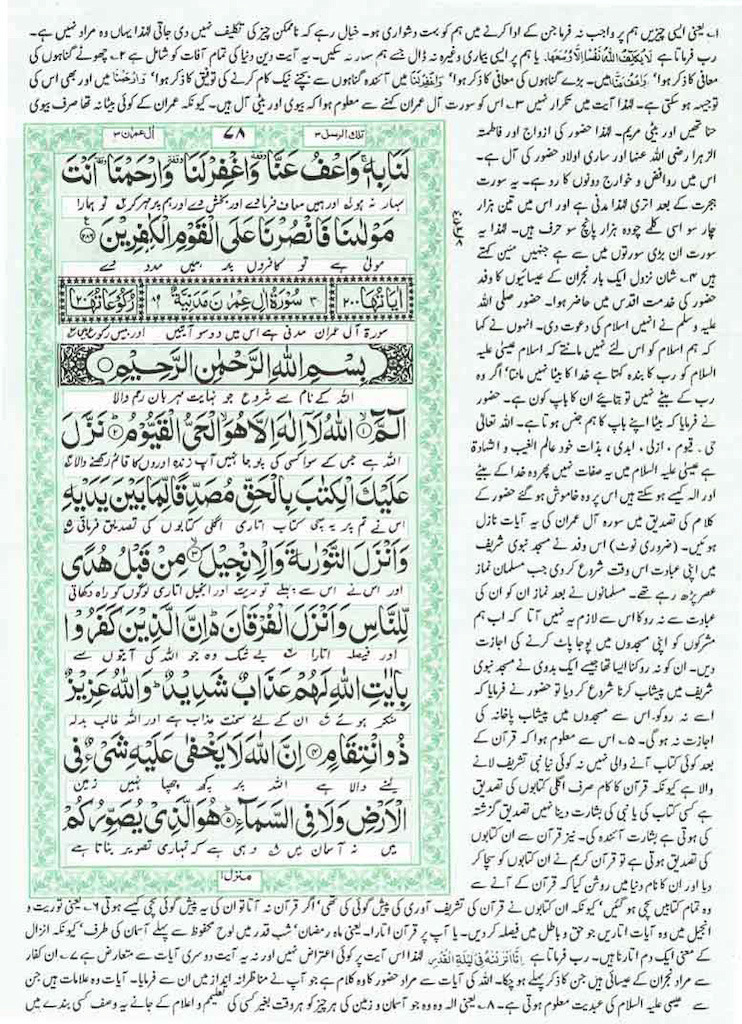 ۱۔ یعنی ایسی چیزیں ہم پر واجب نہ فرما جن کے ادا کرنے میں ہم کو بہت دشواری ہو۔ خیال رہے کہ ناممکن چیز کی تکلیف نہیں دی جاتی لہٰذا یہاں وہ مراد نہیں ہے۔
رب فرماتا ہے لَا یُکَلِّفُ اللّٰہُ نَفْسًا اِلَّا وُسْعَھَا۔ یا ہم پر ایسی بیماری وغیرہ نہ ڈال جسے ہم سہار نہ سکیں۔ یہ آیت دین دنیا کی تمام آفات کو شامل ہے ۲۔ چھوٹے گناہوں کی
معافی کا ذکر ہوا' وَاعْفُ عَنَّا میں۔ بڑے گناہوں کی معافی کا ذکر ہوا' وَاغْفِرْلَنَا میں آئندہ گناہوں سے بچنے نیک کام کرنے کی توفیق کا ذکر ہوا' وَارْحَمْنَا میں اور بھی اس کی
توجیہہ ہو سکتی ہے۔ لہٰذا آیت میں تکرار نہیں ۳۔ اس کو سورت آل عمران کہنے سے معلوم ہوا کہ بیوی اور بیٹی آل ہیں۔ کیونکہ عمران کے کوئی بیٹا نہ تھا صرف بیوی
حنا تھیں اور بیٹی مریم۔ لہٰذا حضور کی ازواج اور فاطمۃ
الزہرا رضی اللہ عنہا اور ساری اولاد حضور کی آل ہے۔
اس میں روافض و خوارج دونوں کا رد ہے۔ یہ سورت
ہجرت کے بعد اتری لہٰذا مدنی ہے اور اس میں تین ہزار
چار سو اسی کلمے چودہ ہزار پانچ سو حرف ہیں۔ لہٰذا یہ
سورت ان بڑی سورتوں میں سے ہے جنہیں مئین کہتے
ہیں ۴۔ شان نزول ایک بار نجران کے عیسائیوں کا وفد
حضور کی خدمت اقدس میں حاضر ہوا۔ حضور صلی اللہ
علیہ وسلم نے انہیں اسلام کی دعوت دی۔ انہوں نے کہا
کہ ہم اسلام کو اس لئے نہیں مانتے کہ اسلام عیسیٰ علیہ
السلام کو رب کا بندہ کہتا ہے خدا کا بیٹا نہیں مانتا' اگر وہ
رب کے بیٹے نہیں تو بتائیے ان کا باپ کون ہے۔ حضور
نے فرمایا کہ بیٹا اپنے باپ کا ہم جنس ہوتا ہے۔ اللہ تعالٰی
حی۔ قیوم' ازلی' ابدی' بذات خود عالم الغیب و الشہادۃ
ہے عیسیٰ علیہ السلام میں یہ صفات نہیں پھر وہ خدا کے بیٹے
اور الہ کیسے ہو سکتے ہیں اس پر وہ خاموش ہو گئے حضور کے
کلام کی تصدیق میں سورہ آل عمران کی یہ آیات نازل
ہوئیں۔ (ضروری نوٹ) اس وفد نے مسجد نبوی شریف
میں اپنی عبادت اس وقت شروع کر دی جب مسلمان نماز
عصر پڑھ رہے تھے۔ مسلمانوں نے بعد نماز ان کو ان کی
عبادت سے نہ روکا اس سے لازم یہ نہیں آتا کہ اب ہم
مشرکوں کو اپنی مسجدوں میں پوجا پاٹ کرنے کی اجازت
دیں۔ ان کو نہ روکنا ایسا تھا جیسے ایک بدوی نے مسجد نبوی
شریف میں پیشاب کرنا شروع کر دیا تو حضور نے فرمایا کہ
اسے نہ روکو۔ اس سے مسجدوں میں پیشاب پاخانہ کی
اجازت نہ ہوگی۔ ۵۔ اس سے معلوم ہوا کہ قرآن کے
بعد کوئی کتاب آنے والی نہیں نہ کوئی نیا نبی تشریف لانے
والا ہے کیونکہ قرآن کا کام صرف اگلی کتابوں کی تصدیق
ہے کسی کتاب کی یا نبی کی بشارت دینا نہیں تصدیق گزشتہ
کی ہوتی ہے بشارت آئندہ کی۔ نیز قرآن سے ان کتابوں
کی تصدیق ہوتی ہے تو قرآن کریم نے ان کتابوں کو سچا کر
دیا اور ان کا نام دنیا میں روشن کیا کہ قرآن کے آنے سے
تلك الرسل ۳
۷۸
اٰل عمرٰن ۳
لَنَا بِهٖ ۚ وَاعْفُ عَنَّا ۥ وَاغْفِرْ لَنَا ۥ وَارْحَمْنَا ۥ اَنْتَ
سہار نہ ہو اور ہمیں معاف فرما دے اور بخش دے اور ہم پر مہر کر تو ہمارا
مَوْلٰىنَا فَانْصُرْنَا عَلَى الْقَوْمِ الْكٰفِرِيْنَ ﴿۲۸۶﴾
مولیٰ ہے تو کافروں پر ہمیں مدد دے
اٰيَاتُهَا ۲۰۰ ۳ سُوْرَةُ اٰلِ عِمْرٰنَ مَدَنِيَّةٌ ۸۹ رُكُوْعَاتُهَا ۲۰
سورۃ آل عمران مدنی ہے اس میں دو سو آیتیں اور بیس رکوع ہیں
بِسْمِ اللّٰهِ الرَّحْمٰنِ الرَّحِيْمِ
اللہ کے نام سے شروع جو نہایت مہربان رحم والا
الٓمّٓ ﴿۱﴾ اللّٰهُ لَاۤ اِلٰهَ اِلَّا هُوَ الْحَیُّ الْقَيُّوْمُ ﴿۲﴾ نَزَّلَ
اللہ ہے جس کے سوا کسی کی پوجا نہیں آپ زندہ اوروں کا قائم رکھنے والا
عَلَيْكَ الْكِتٰبَ بِالْحَقِّ مُصَدِّقًا لِّمَا بَيْنَ يَدَيْهِ
اس نے تم پر یہ سچی کتاب اتاری اگلی کتابوں کی تصدیق فرماتی
وَاَنْزَلَ التَّوْرٰىةَ وَالْاِنْجِيْلَ ﴿۳﴾ مِنْ قَبْلُ هُدًى
اور اس نے اس سے پہلے توریت اور انجیل اتاری لوگوں کو راہ دکھاتی
لِّلنَّاسِ وَاَنْزَلَ الْفُرْقَانَ ۬ؕ اِنَّ الَّذِيْنَ كَفَرُوْا
اور فیصلہ اتارا بے شک وہ جو اللہ کی آیتوں سے
بِاٰيٰتِ اللّٰهِ لَهُمْ عَذَابٌ شَدِيْدٌ ؕ وَاللّٰهُ عَزِيْزٌ
منکر ہوئے ان کے لئے سخت عذاب ہے اور اللہ غالب بدلہ
ذُو انْتِقَامٍ ﴿۴﴾ اِنَّ اللّٰهَ لَا يَخْفٰى عَلَيْهِ شَیْءٌ فِی
لینے والا ہے اللہ پر کچھ چھپا نہیں زمین
الْاَرْضِ وَلَا فِی السَّمَآءِ ﴿۵﴾ هُوَ الَّذِیْ يُصَوِّرُكُمْ
میں نہ آسمان میں وہی ہے کہ تمہاری تصویر بناتا ہے
منزل ۱
وہ تمام کتابیں سچی ہو گئیں' کیونکہ ان کتابوں نے قرآن کی تشریف آوری کی پیش گوئی کی تھی' اگر قرآن نہ آتا تو ان کی یہ پیش گوئی سچی کیسے ہوتی ۶۔ یعنی توریت و
انجیل میں وہ آیات اتاریں جو حق و باطل میں فیصلہ کر دیں۔ یا آپ پر قرآن اتارا۔ یعنی ماہ رمضان' شب قدر میں لوح محفوظ سے پہلے آسمان کی طرف' کیونکہ انزال
کے معنی ایک دم اتارنا ہیں۔ رب فرماتا ہے اِنَّا اَنْزَلْنٰهُ فِیْ لَيْلَةِ الْقَدْرِ لہٰذا اس آیت پر کوئی اعتراض نہیں اور نہ یہ آیت دوسری آیات سے متعارض ہے ۷۔ ان کفار
سے مراد نجران کے عیسائی ہیں جن کا ذکر پہلے ہو چکا۔ اللہ کی آیات سے مراد حضور کا وہ کلام ہے جو آپ نے مناظرانہ انداز میں ان سے فرمایا۔ یا آیات وہ علامات ہیں جن
سے عیسیٰ علیہ السلام کی عبدیت معلوم ہوتی ہے۔ ۸۔ یعنی الہ وہ ہے جو آسمان و زمین کی ہر چیز کو ہر وقت بغیر کسی کی تعلیم و اعلام کے جانے یہ وصف کسی بندے میں